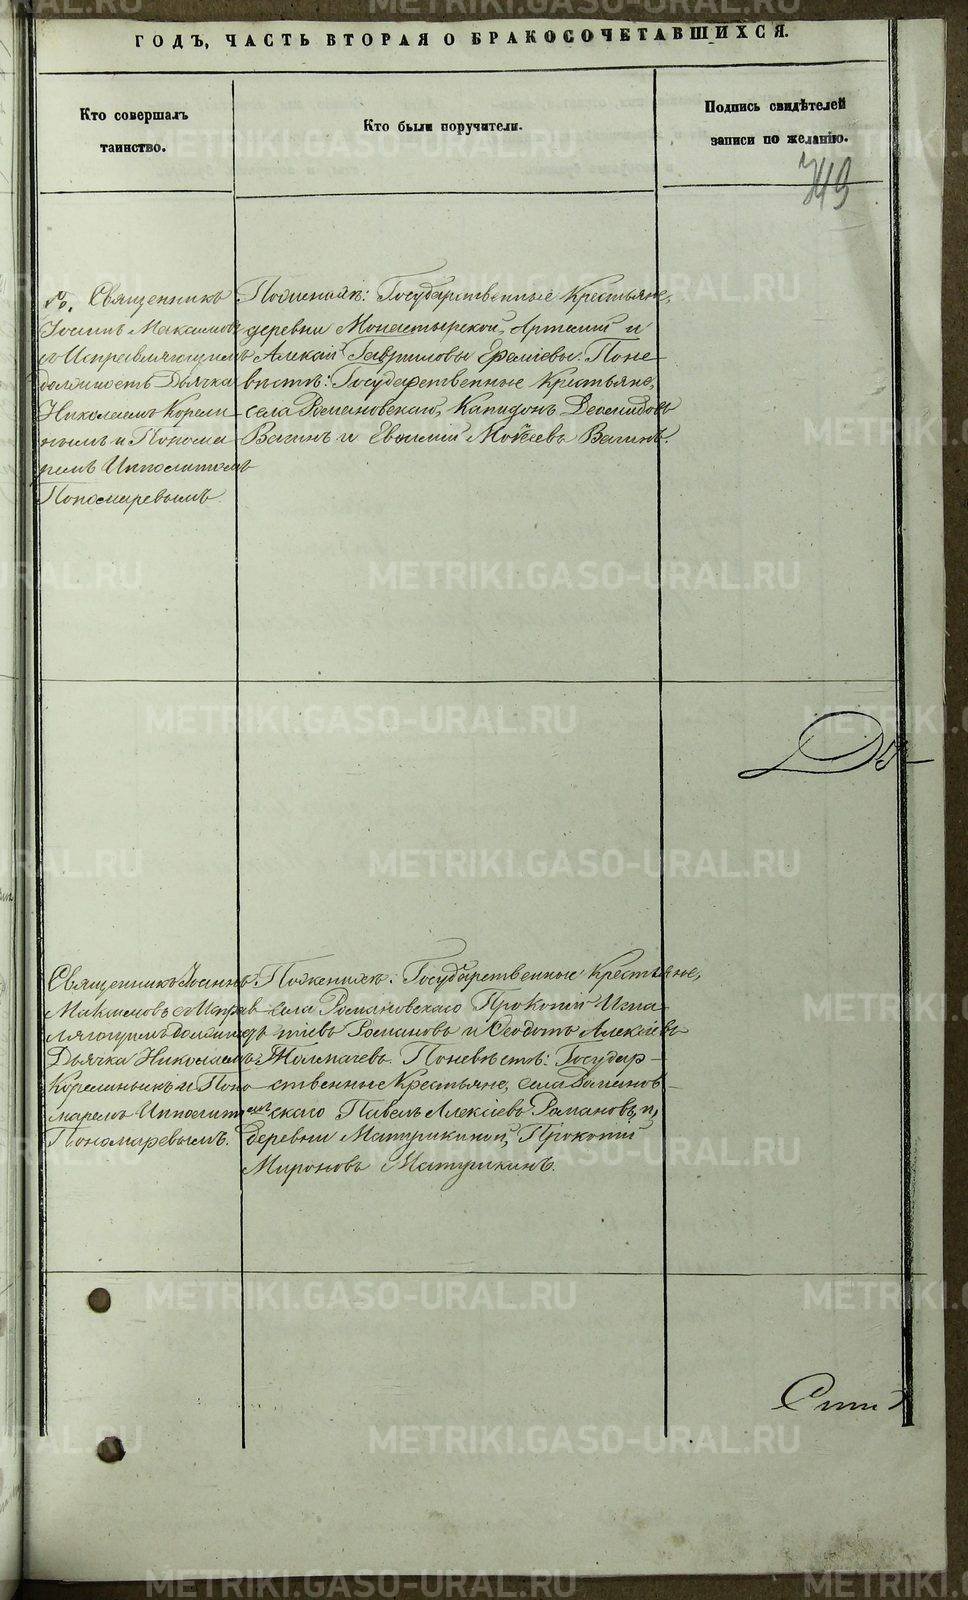 ГОДЪ, ЧАСТЬ ВТОРАЯ О БРАКОСОЧЕТАВШИХСЯ.
Кто совершалъ
таинство.
Кто были поручители.
Подпись свидѣтелей
записи по желанію.
Священникъ
Іоаннъ Максимовъ
съ Исправляющимъ
должность Дьячка
Николаемъ Корели
нымъ и Понома
ремъ Ипполитомъ
Пономаревымъ.
По женихѣ: Государственные Крестьяне,
деревни Монастырской, Артемій и
Алексѣй Гавриловы Еремѣевы. По не
вѣстѣ: Государственные Крестьяне,
села Романовскаго, Капидонъ Деомидовъ
Вагинъ и Евѳимій Мокѣевъ Вагинъ.
Священникъ Іоаннъ
Максимовъ съ Исправ
ляющимъ должность
Дьячка Николаемъ
Корелинымъ и Поно
маремъ Ипполитомъ
Пономаревымъ.
По женихѣ: Государственные Крестьяне,
села Романовскаго Прокопій Игна
тіевъ Романовъ и Ѳеодотъ Алексѣевъ
Толмачевъ. По невѣстѣ: Государ-
ственные Крестьяне, села Романов-
скаго Павелъ Алексѣевъ Романовъ, и
деревни Матушкиной, Прокопій
Мироновъ Матушкинъ.
METRIKI.GASO-URAL.RU